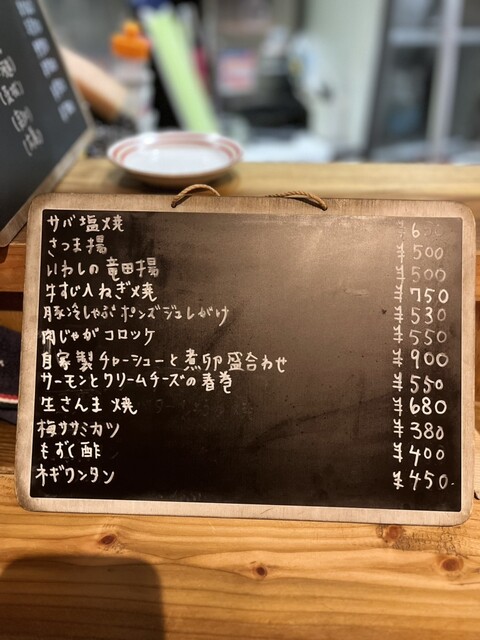 サバ塩焼 ¥6
さつま揚 ¥500
いわしの竜田揚 ¥500
牛すじ入ねぎ焼 ¥750
豚冷しゃぶポンズジュレがけ ¥530
肉じゃがコロッケ ¥550
自家製チャーシューと煮卵盛合わせ ¥900
サーモンとクリームチーズの春巻 ¥550
生さんま焼 ¥680
梅ササミカツ ¥380
もずく酢 ¥400
ネギワンタン ¥450-